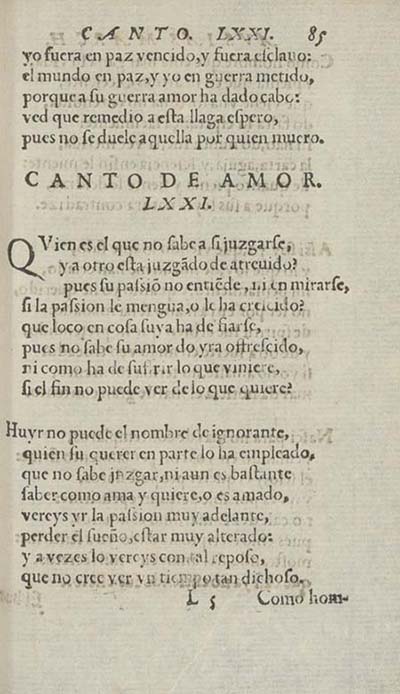 CANTO. LXXI. 85
yo fuera en paz vencido, y fuera esclauo:
el mundo en paz, y yo en guerra metido,
porque a su guerra amor ha dado cabo:
ved que remedio a esta llaga espero,
pues no se duele aquella por quien muero.
CANTO DE AMOR.
LXXI.
QVien es el que no sabe a si juzgarse,
y a otro esta juzgãdo de atreuido?
pues su passiõ no entiẽde, ni en mirarse,
si la passion le mengua, o le ha crecido?
que loco en cosa suya ha de fiarse,
pues no sabe su amor do yra offrescido,
ni como ha de sufrir lo que viniere,
si el fin no puede ver de lo que quiere?
Huyr no puede el nombre de ignorante,
quien su querer en parte lo ha empleado,
que no sabe jnzgar, ni aun es bastante
saber como ama y quiere, o es amado,
vereys yr la passion muy adelante,
perder el sueño, estar muy alterado:
y a vezes lo vereys con tal reposo,
que no cree ver vn tiempo tan dichoso.
L 5 Como hom-